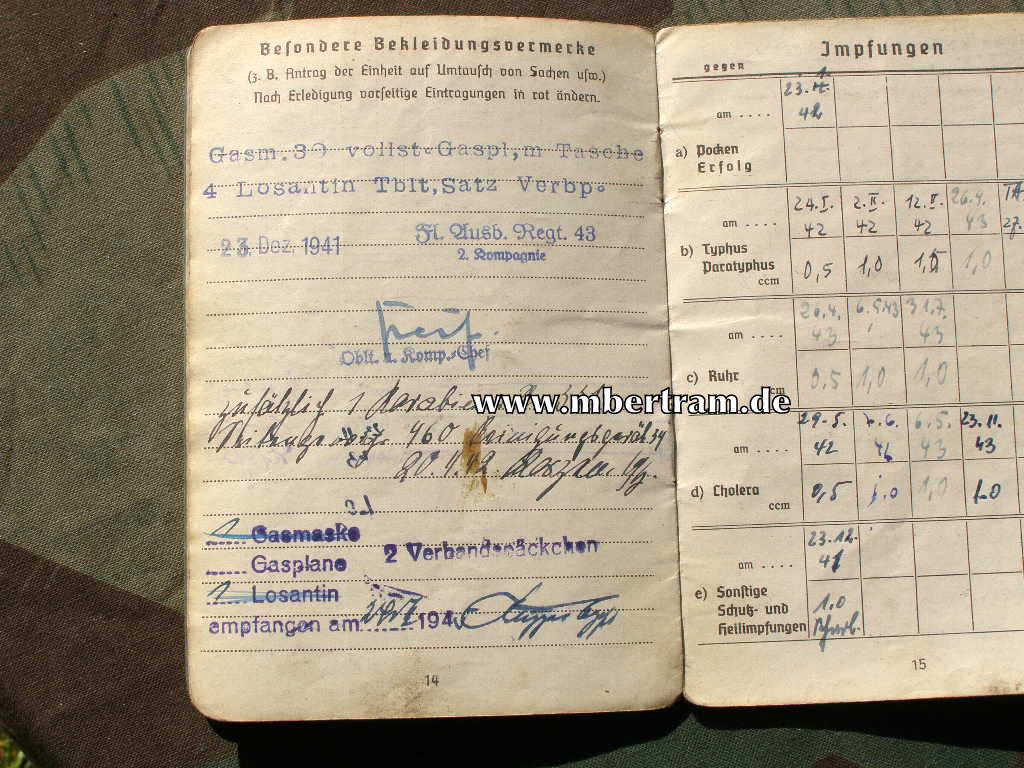 Besondere Bekleidungsvermerke
(z. B. Antrag der Einheit auf Umtausch von Sachen usw.)
Nach Erledigung vorseitige Eintragungen in rot ändern.
Gasm.30 vollst.Gaspl,m Tasche
4 Losantin Tblt,Satz Verbp.
23. Dez. 1941
Fl. Ausb. Regt. 43
2. Kompagnie
Oblt. u. Komp.-Chef
zusätzlich 1
460 Reinigungsgerät 34
Gasmaske
2 Verbandspäckchen
Gasplane
Losantin
empfangen am 194
14
www.mbertram.de
Impfungen
gegen
23. 1.
am .... 42
a) Pocken
Erfolg
24. I. 2. II. 12. II. 26.4.
am .... 42 42 42 43 27.
b) Typhus
Paratyphus
ccm 0,5 1,0 1,0 1,0
26.4. 6.5.43 31.7.
am .... 43 43
c) Ruhr
ccm 0,5 1,0 1,0
29.5. 6.5. 23.11.
am .... 42 42 43 43
d) Cholera
ccm 0,5 1.0 1,0 1.0
23.12.
am .... 41
e) Sonstige
Schutz- und
Heilimpfungen
1.0
15